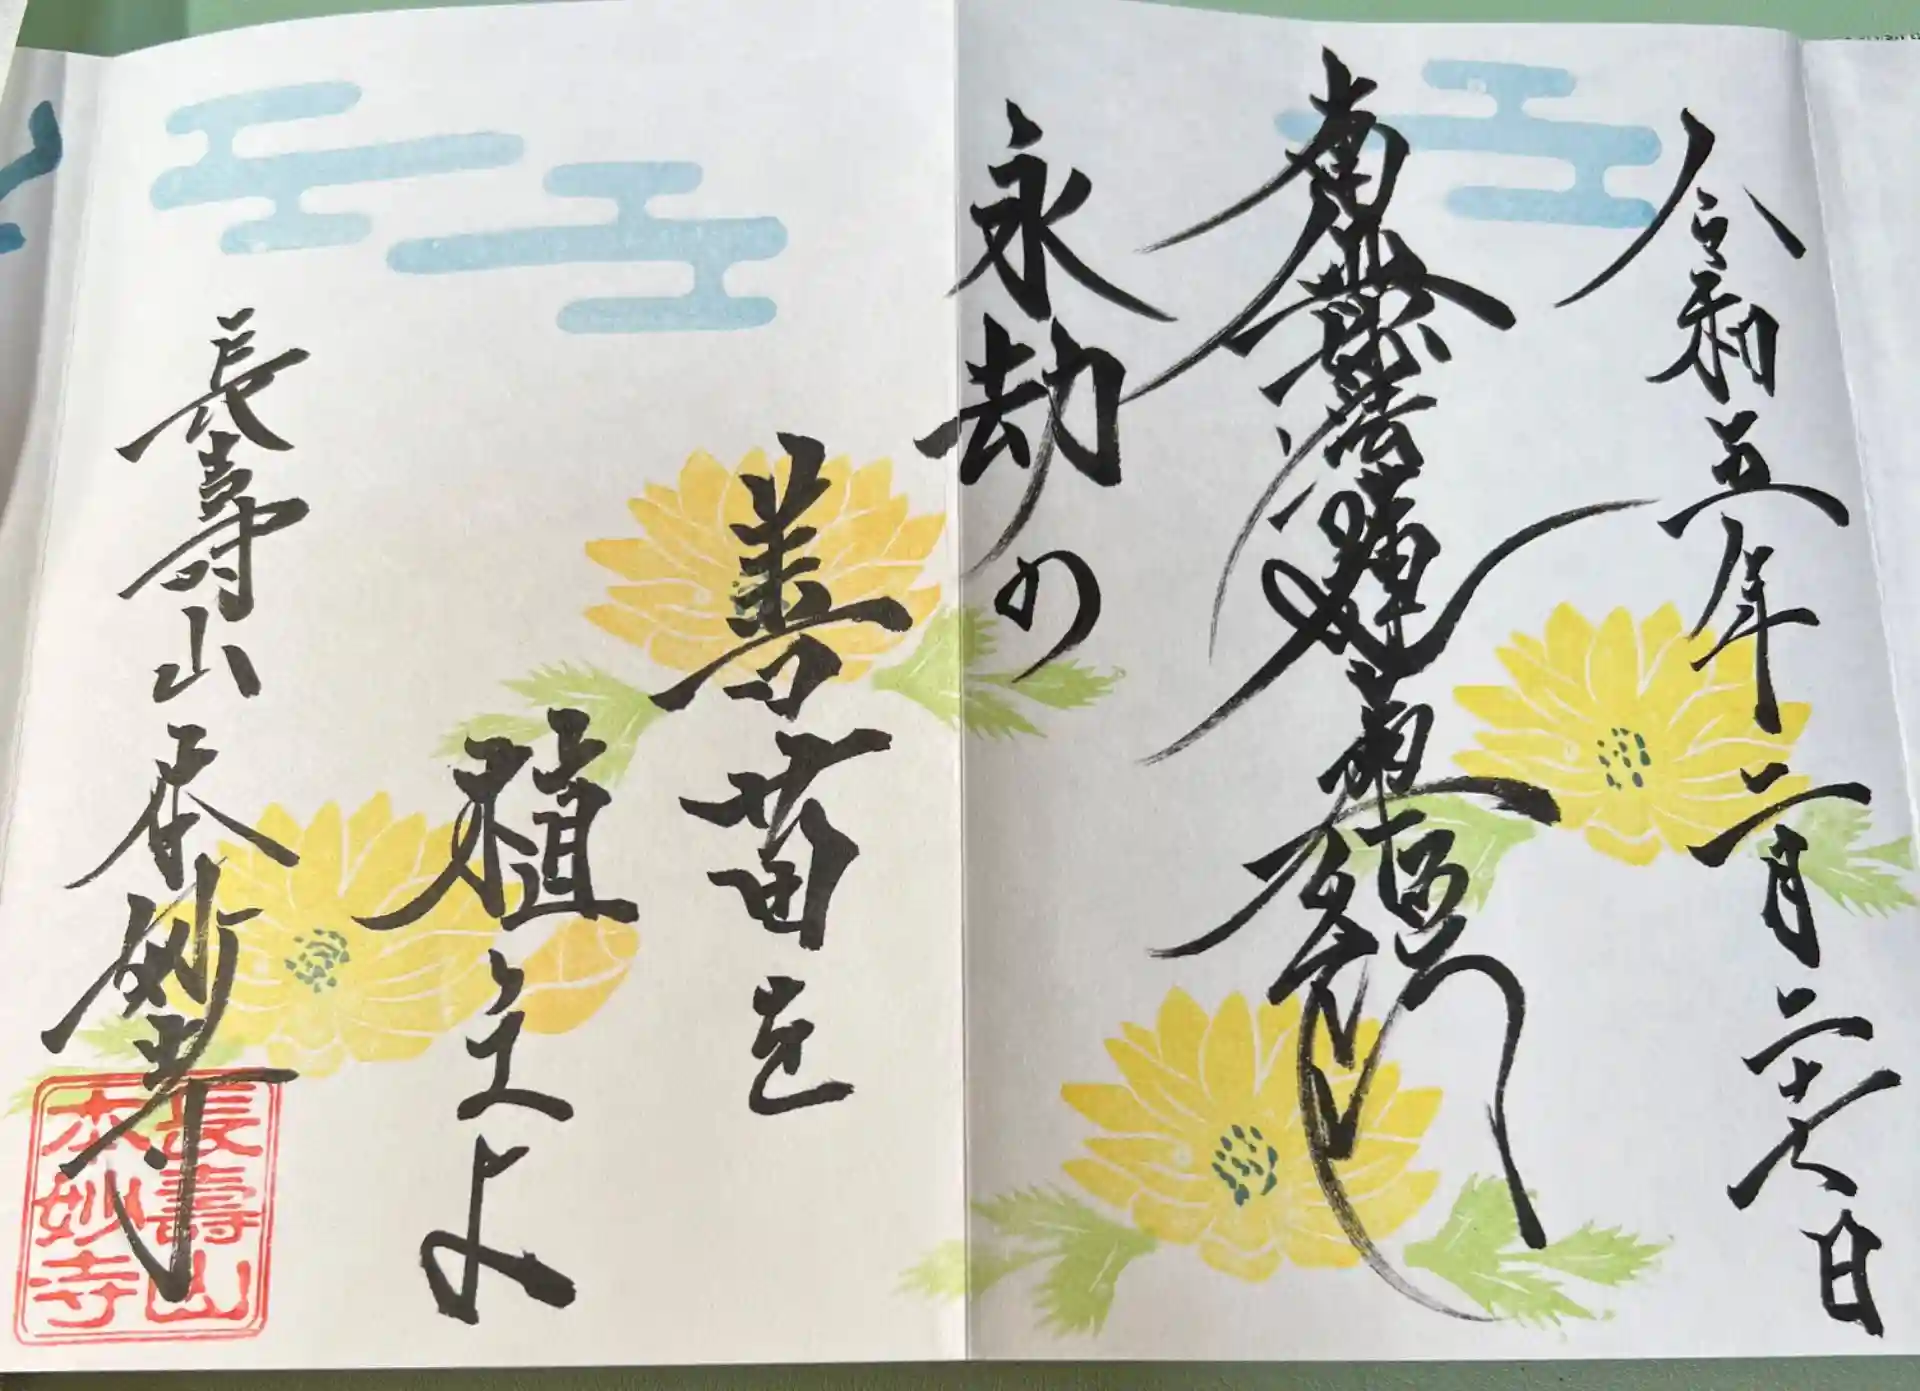 令和五年二月二十八日
南無妙法蓮華経
永劫の
善苗を
植えよ
長壽山 本妙寺
長壽山
本妙寺